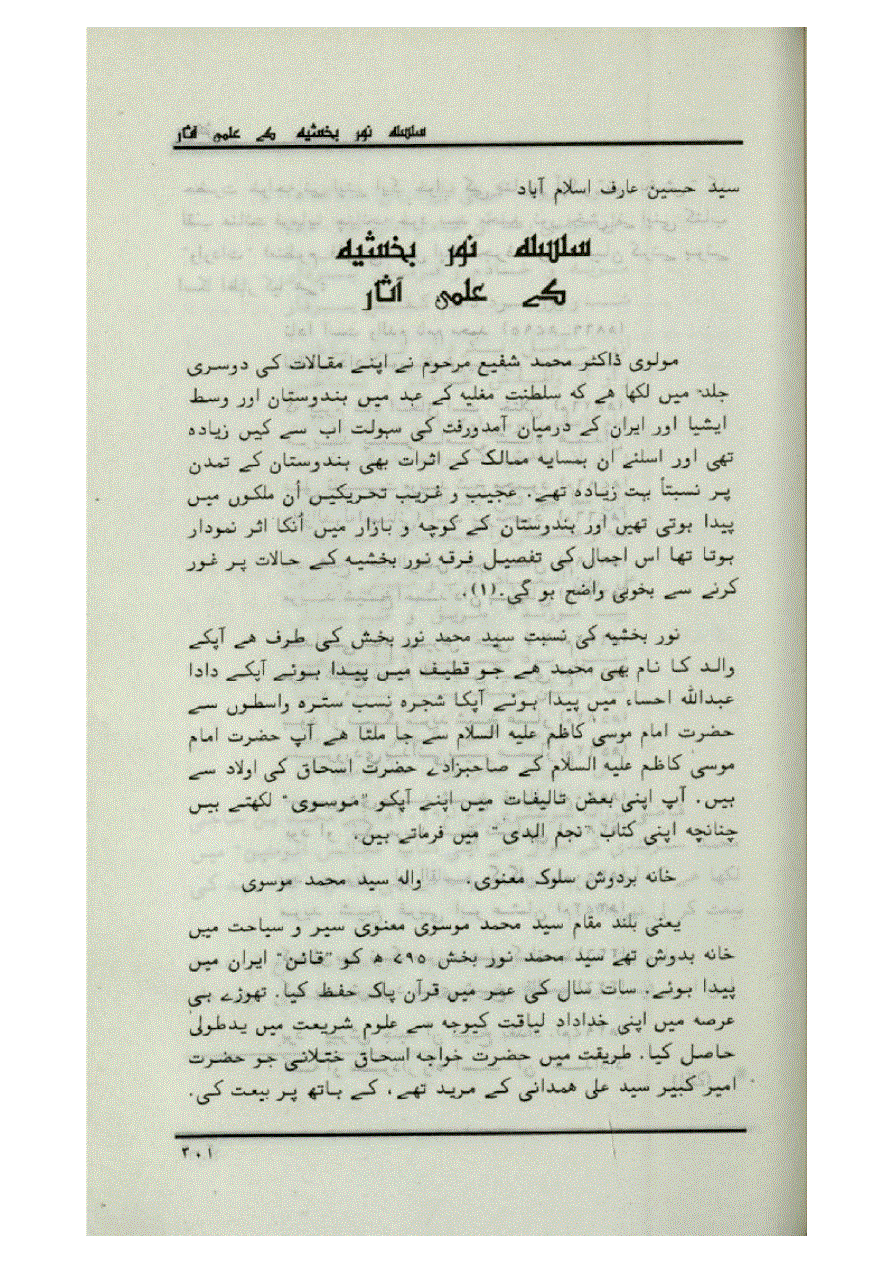 سلسله نور بخشیه کے علمی آثار
سید حسنین عارف اسلام آباد
سلسله نور بخشیه
کے علمی آثار
مولوی ڈاکٹر محمد شفیع مرحوم نے اپنے مقالات کی دوسری
جلد میں لکھا هے که سلطنت مغلیه کے عہد میں ہندوستان اور وسط
ایشیا اور ایران کے درمیان آمدورفت کی سہولت اب سے کہیں زیاده
تھی اور اسلئے ان ہمسایه ممالک کے اثرات بھی ہندوستان کے تمدن
پر نسبتاً بہت زیاده تھے. عجیب و غریب تحریکیں اُن ملکوں میں
پیدا ہوتی تھیں اور ہندوستان کے کوچه و بازار میں اُنکا اثر نمودار
ہوتا تھا اس اجمال کی تفصیل فرقه نور بخشیه کے حالات پر غور
کرنے سے بخوبی واضح ہو گی.(۱).
نور بخشیه کی نسبت سید محمد نور بخش کی طرف هے آپکے
والد کا نام بھی محمد هے جو قطیف میں پیدا ہوئے آپکے دادا
عبدالله احساء میں پیدا ہوئے آپکا شجره نسب ستره واسطوں سے
حضرت امام موسی کاظم علیه السلام سے جا ملتا هے آپ حضرت امام
موسیٰ کاظم علیه السلام کے صاحبزادے حضرت اسحاق کی اولاد سے
ہیں. آپ اپنی بعض تالیفات میں اپنے آپکو "موسوی" لکھتے ہیں
چنانچه اپنی کتاب "نجم الہدی" میں فرماتے ہیں.
خانه بردوش سلوک معنوی. واله سید محمد موسوی
یعنی بلند مقام سید محمد موسوی معنوی سیر و سیاحت میں
خانه بدوش تھے سید محمد نور بخش ۷۹۵ ھ کو "قائن" ایران میں
پیدا ہوئے. سات سال کی عمر میں قرآن پاک حفظ کیا. تھوڑے ہی
عرصه میں اپنی خداداد لیاقت کیوجه سے علوم شریعت میں یدطولیٰ
حاصل کیا. طریقت میں حضرت خواجه اسحاق ختلانی جو حضرت
امیر کبیر سید علی همدانی کے مرید تھے، کے ہاتھ پر بیعت کی.
۳۰۱